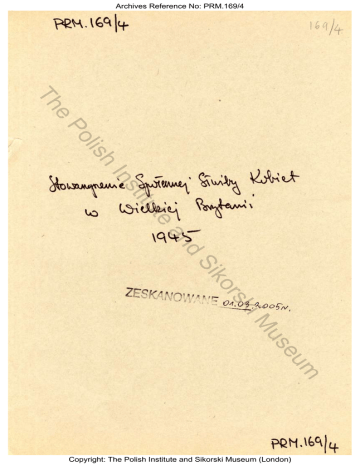 Archives Reference No: PRM.169/4
PRM.169/4
169/4
The Polish Institute and Sikorski Museum
Stowarzyszenie Społecznej Służby Kobiet
w Wielkiej Brytanii
1945
ZESKANOWANE 2005r.
PRM.169/4
Copyright: The Polish Institute and Sikorski Museum (London)